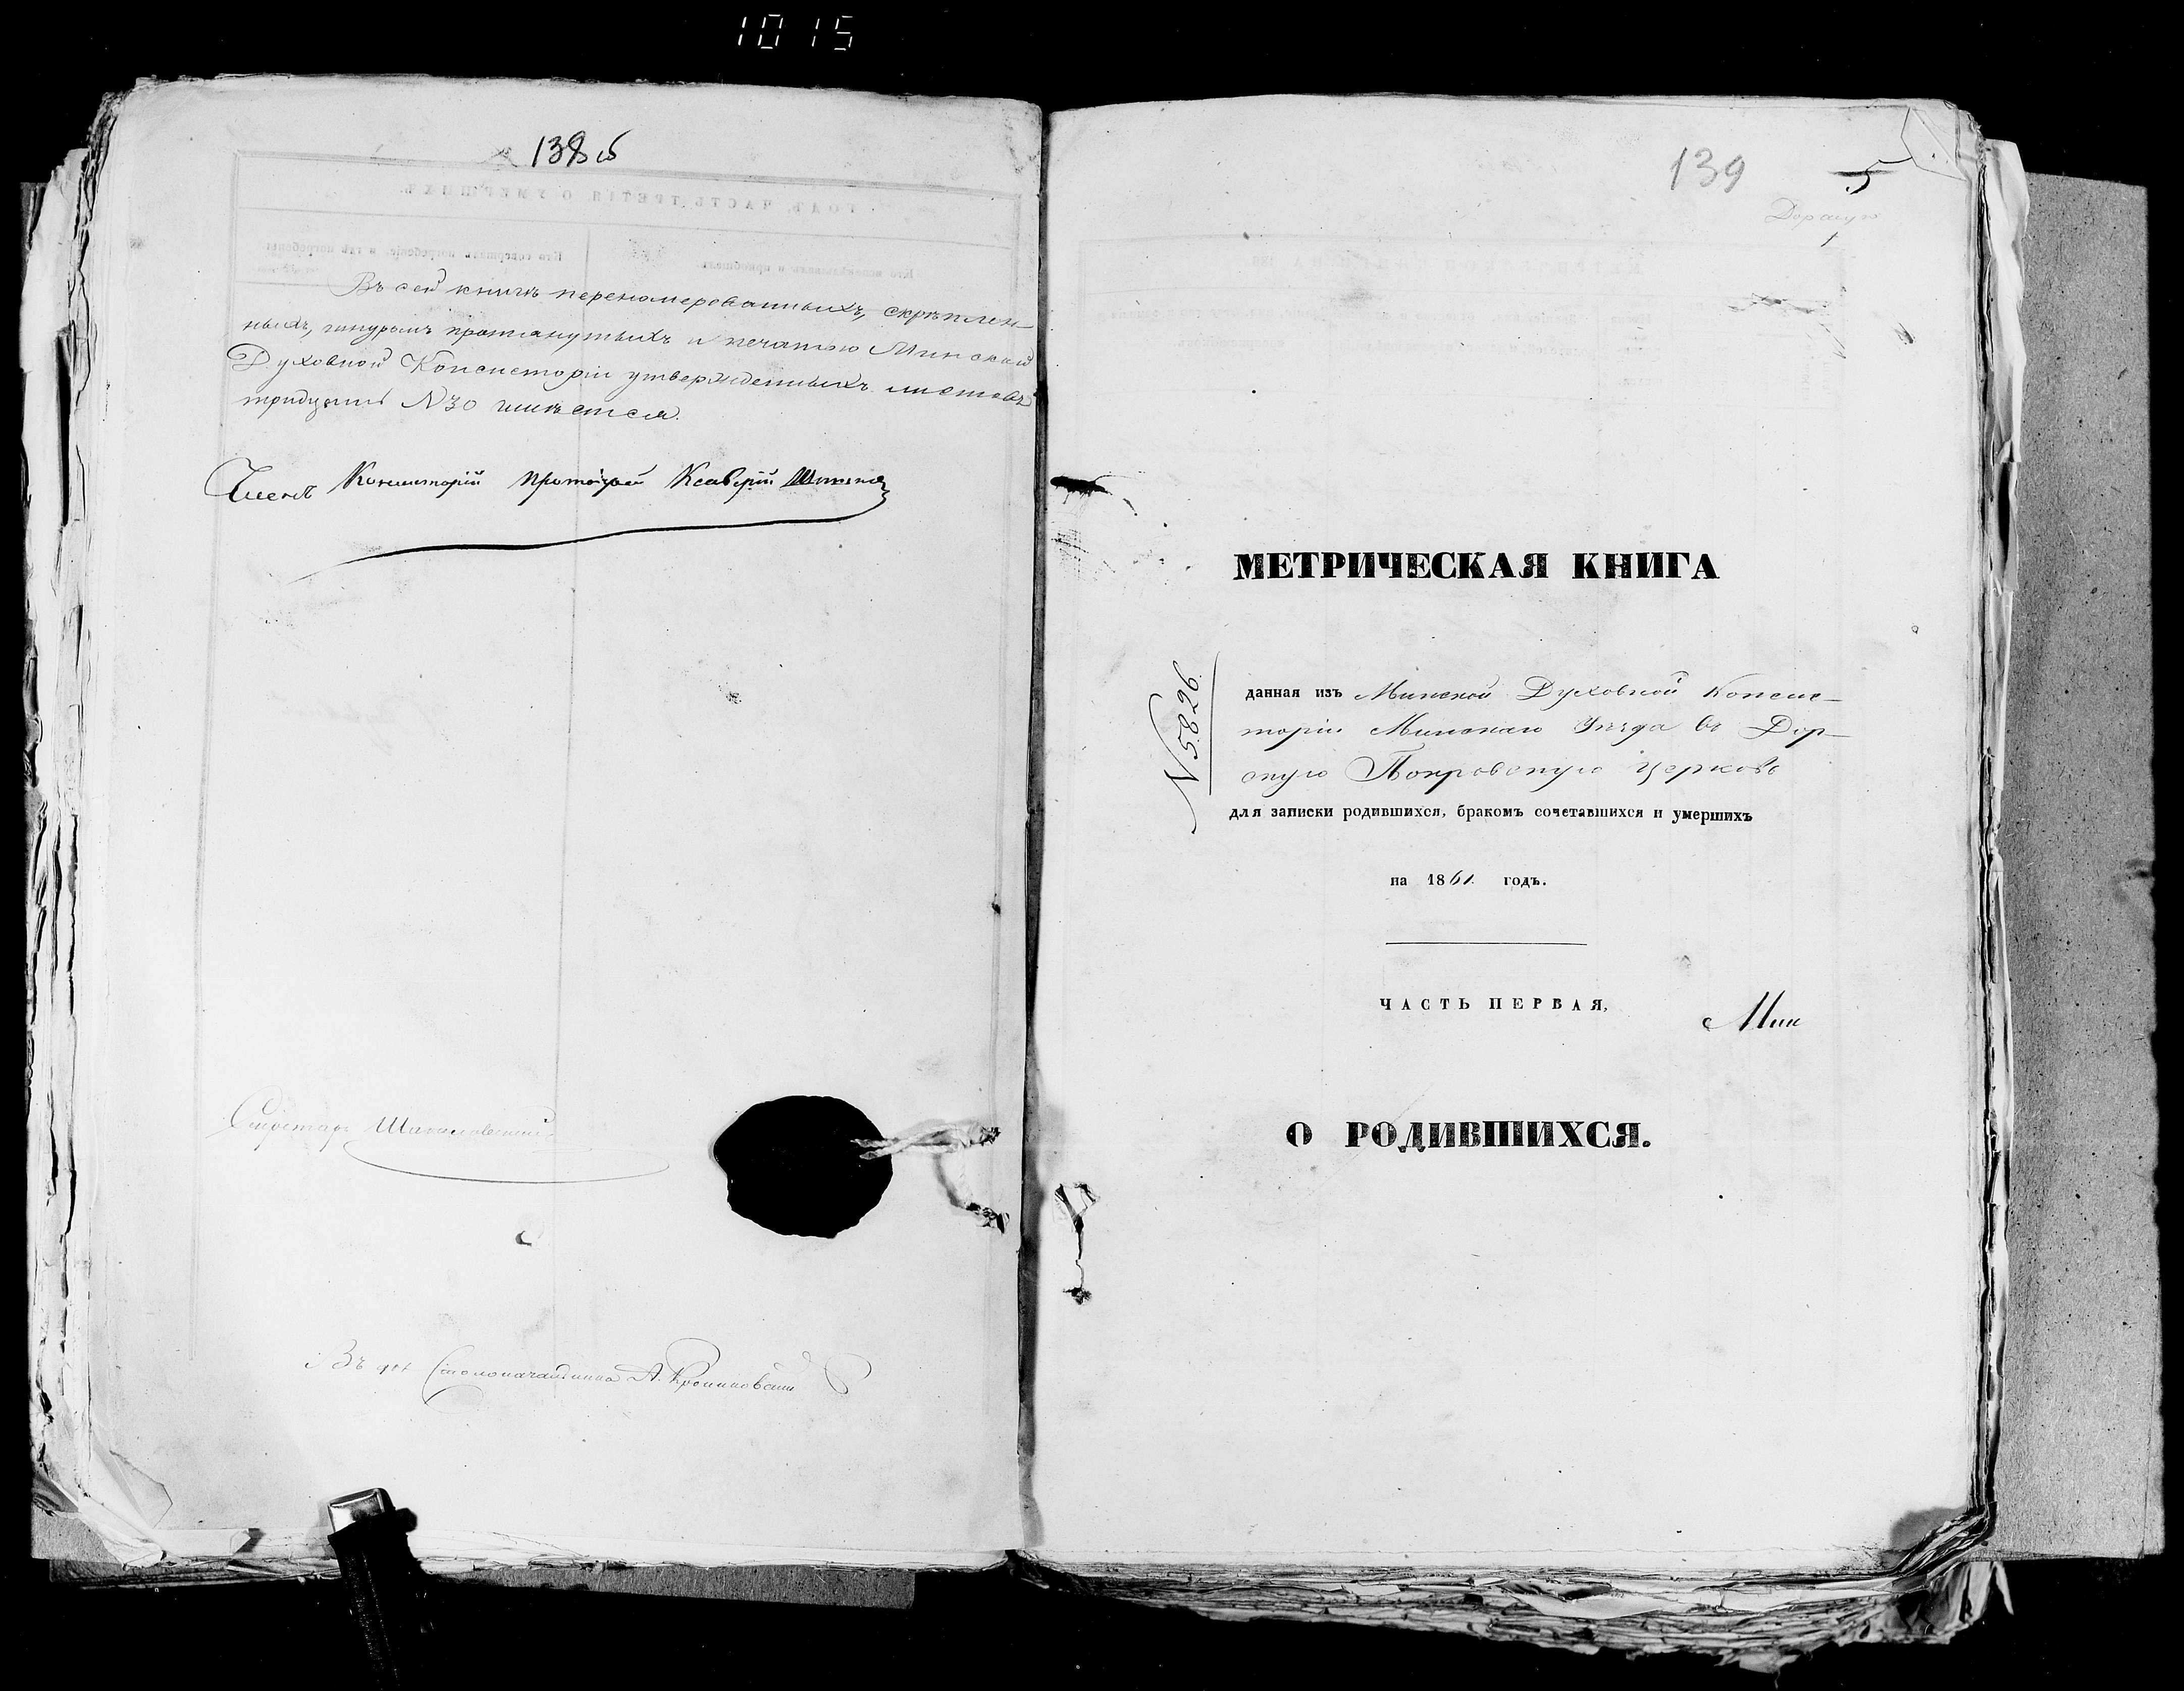 1015
138об
Въ сей книгѣ перенумерованныхъ, скрѣплен-
ныхъ, шнуромъ протянутыхъ и печатью Минской
Духовной Консисторіи утвержденныхъ листовъ
тридцать №30 имѣется.
Членъ Консисторіи Протоіерей Ксаверій
Секретарь
Въ Столоначальника А.
139 5
Дорскую
1
МЕТРИЧЕСКАЯ КНИГА
N 5826.
данная изъ Минской Духовной Консис-
торіи Минскаго Уѣзда въ Дор-
скую Покровскую церковь
для записки родившихся, бракомъ сочетавшихся и умершихъ
на 1861. годъ.
ЧАСТЬ ПЕРВАЯ,
Мин
О РОДИВШИХСЯ.